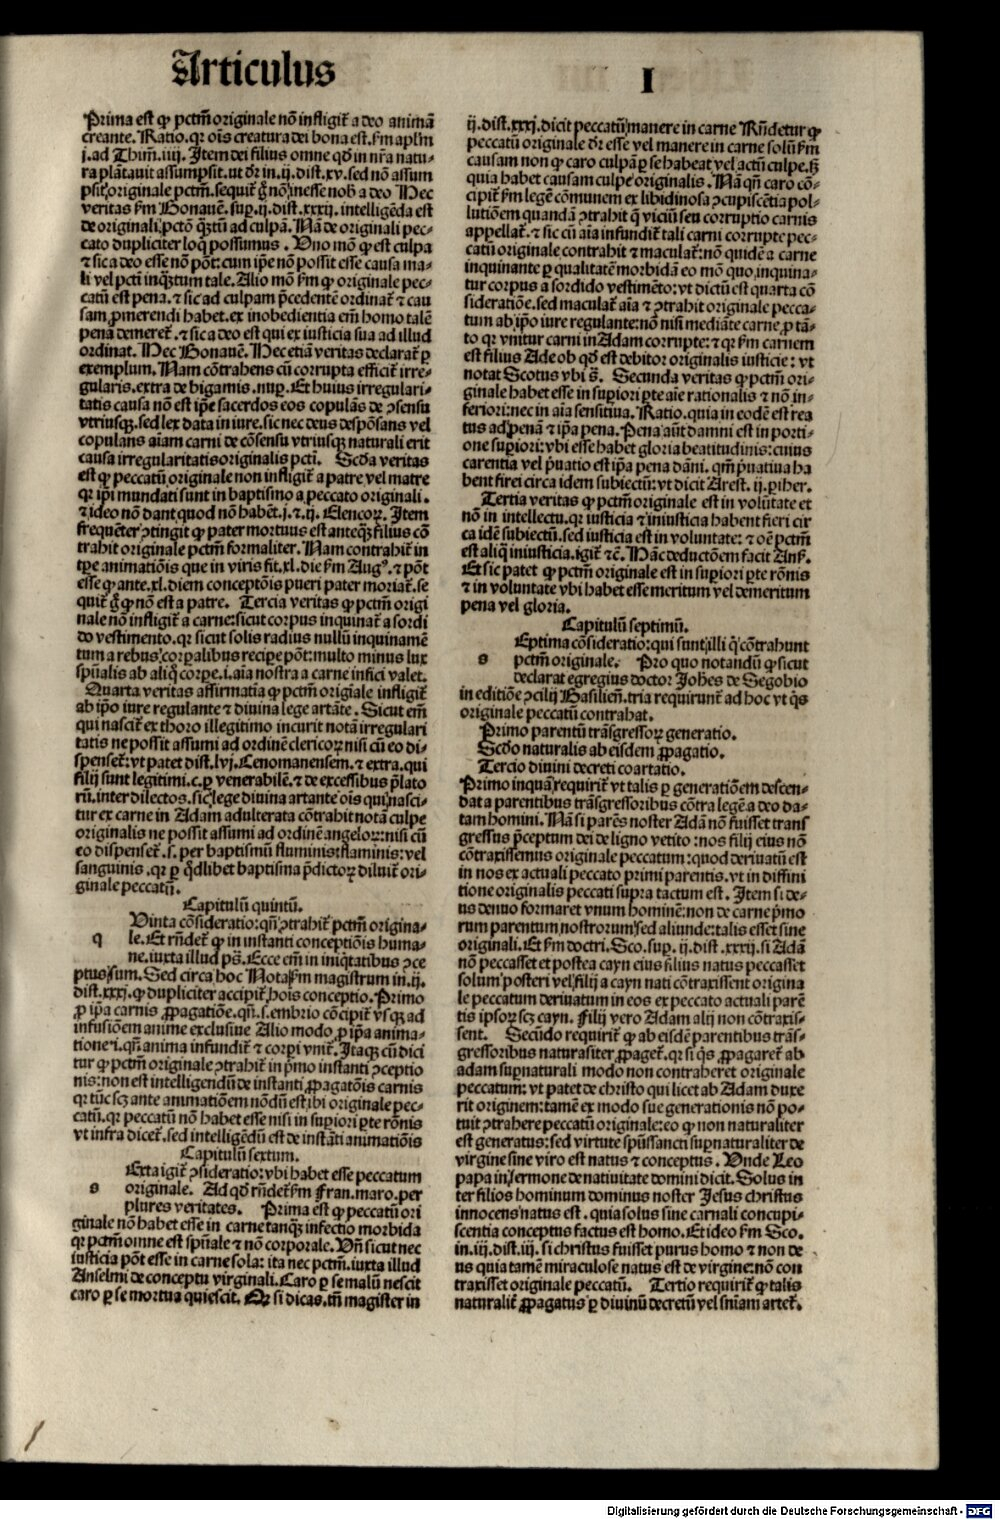 Articulus
I
Prima est qꝫ pctm̄ originale nō infligit̄ a deo animā
creante. Ratio. qr oīs creatura dei bona est. ẜm apl̄m
j. ad Thim. iiij. Item dei filius omne qd̄ in nr̄a natu-
ra plātauit assumpsit. vt dr̄ in. ij. dist. xv. sed nō assum
psit originale pctm̄. sequit̄ g̊ nō inesse nob̄ a deo Hec
veritas ẜm Bonauē. suꝑ. ij. dist. xxxij. intelligēda est
de originali pctō qꝫtū ad culpā. Nā de originali pec-
cato dupliciter loq̄ possumus. Uno mō ꝙ est culpa
⁊ sic a deo esse nō pōt: cum ip̄e nō possit esse causa ma-
li vel pcti inqꝫtum tale. Alio mō ẜm ꝙ originale pec-
catū est pena. ⁊ sic ad culpam p̄cedentē ordinat̄ ⁊ cau
sam ꝓmerendi habet. ex inobedientia em̄ homo talē
pena demeret̄. ⁊ sic a deo est qui ex iusticia sua ad illud
ordinat. Hec Bonauē. Hec etiā veritas declarat̄ ꝑ
exemplum. Nam cōtrahens cū corrupta efficit̄ irre-
gularis. extra de bigamis. nuꝑ. Et huius irregulari-
tatis causa nō est ip̄e sacerdos eos copulās de ɔsensu
vtriusqꝫ. sed lex data in iure. sic nec deus despōsans vel
copulans aīam carni de cōsensu vtriusqꝫ naturali erit
causa irregularitatis originalis pcti. Scd̄a veritas
est ꝙ peccatū originale non infligit̄ a patre vel matre
qr ip̄i mundati sunt in baptismo a peccato originali.
⁊ ideo nō dant quod nō habēt. j. ⁊. ij. Elencoꝝ. Item
frequēter ɔtingit ꝙ pater mortuus est anteqꝫ filius cō
trahit originale pctm̄ formaliter. Nam contrahit̄ in
tꝑe animatiōis que in viris fit. xl. die ẜm Aug⁹. ⁊ pōt
esse ꝙ ante. xl. diem conceptōis pueri pater moriat̄. se
quit̄ g̊ ꝙ nō est a patre. Tercia veritas ꝙ pctm̄ origi
nale nō infligit̄ a carne: sicut corpus inquinat̄ a sordi
do vestimento. qr sicut solis radius nullū inquinamē
tum a rebus corꝑalibus recipe pōt: multo minus lux
spūalis ab aliq̊ corꝑe. i. aīa nostra a carne infici valet.
Quarta veritas affirmatia ꝙ pctm̄ origīale infligit̄
ab ip̄o iure regulante ⁊ diuina lege artāte. Sicut em̄
qui nascit̄ ex thoro illegitimo incurit notā irregulari
tatis ne possit assumi ad ordinē clericoꝝ nisi cū eo di-
spenset̄: vt patet dist. lvj. Cenomanensem. ⁊ extra. qui
filij sunt legitimi. c. ꝑ venerabilē. ⁊ de excessibus p̄lato
rū. inter dilectos. sic lege diuina artante oīs qui nasci-
tur ex carne in Adam adulterata cōtrahit notā culpe
originalis ne possit assumi ad ordinē angeloꝝ: nisi cū
eo dispenset̄. s. per baptismū fluminis: flaminis: vel
sanguinis. qr ꝑ qd̄libet baptisma p̄dictoꝝ diluit̄ ori-
ginale peccatū.
Capitulū quintū.
Uinta cōsideratio: qn̄ ɔtrahit̄ pctm̄ origina-
q le. Et rn̄det̄ ꝙ in instanti conceptiōis huma-
ne. iuxta illud ps̄. Ecce em̄ in iniq̄tatibus ɔce
ptus sum. Sed circa hoc Nota ẜm magistrum in. ij.
dist. xxxj. ꝙ dupliciter accipit̄ hoīs conceptio. Primo
ꝓ ip̄a carnis ꝓpagatiōe. qn̄. s. embrio cōcipit̄ vsqꝫ ad
infusiōem anime exclusiue Alio modo ꝓ ip̄a anima-
tione. i. qn̄ anima infundit̄ ⁊ corpi vnit̄. Itaqꝫ cū dici
tur ꝙ pctm̄ originale ɔtrahit̄ in p̄mo instanti ɔceptio
nis: non est intelligendū de instanti ꝓpagatōis carnis
qr tūc scꝫ ante animatiōem nōdū est ibi originale pec-
catū. qr peccatū nō habet esse nisi in suꝑiori ꝑte rōnis
vt infra dicet̄. sed intelligēdū est de instāti animatiōis
Capitulū sextum.
Exta igit̄ ɔsideratio: vbi habet esse peccatum
s originale. Ad qd̄ rn̄det̄ ẜm Fran. maro. per
plures veritates. Prima est ꝙ peccatū ori
ginale nō habet esse in carne tanqꝫ infectio morbida
qr pctm̄ omne est spūale ⁊ nō corporale. Un̄ sicut nec
iusticia pōt esse in carne sola: ita nec pctm̄. iuxta illud
Anselmi de conceptu virginali. Caro ꝑ se malū nescit
caro ꝑ se mortua quiescit. Qꝫ si dicas. tn̄ magister in
ij. dist. xxxj. dicit peccatū manere in carne Rn̄detur ꝙ
peccatū originale dr̄ esse vel manere in carne solū ẜm
causam non ꝙ caro culpā ꝑ se habeat vel actū culpe. sꝫ
quia habet causam culpe originalis. Nā qn̄ caro cō-
cipit̄ ẜm legē cōmunem ex libidinosa ɔcupiscētia pol-
lutiōem quandā ɔtrahit q̄ viciū seu corruptio carnis
appellat̄. ⁊ sic cū aīa infundit̄ tali carni corrupte pec-
catū originale contrahit ⁊ maculat̄: nō quidē a carne
inquinante ꝑ qualitatē morbidā eo mō quo inquina-
tur corpus a sordido vestimēto: vt dictū est quarta cō
sideratiōe. sed maculat̄ aīa ⁊ ɔtrahit originale pecca-
tum ab ip̄o iure regulante: nō nisi mediāte carne, ꝓ tā-
to qr vnitur carni in Adam corrupte: ⁊ qr ẜm carnem
est filius Ade ob qd̄ est debitor originalis iusticie: vt
notat Scotus vbi s̄. Secunda veritas ꝙ pctm̄ ori-
ginale habet esse in suꝑiori ꝑte aīe rationalis ⁊ nō in-
feriori: nec in aīa sensitiua. Ratio. quia in eodē est rea
tus ad penā ⁊ ip̄a pena. Pena aūt damni est in porti-
one suꝑiori: vbi esse habet gloria beatitudinis: cuius
carentia vel p̄uatio est ip̄a pena dāni. qm̄ p̄uatiua ha
bent fieri circa idem subiectū: vt dicit Arest. ij. piher.
Tertia veritas ꝙ pctm̄ originale est in volūtate et
nō in intellectu. qr iusticia ⁊ iniusticia habent fieri cir
ca idē subiectū. sed iusticia est in voluntate: ⁊ oē pctm̄
est aliq̄ iniusticia. igit̄ ⁊c̄. Hāc deductōem facit Ans̄.
Et sic patet ꝙ pctm̄ originale est in suꝑiori ꝑte rōnis
⁊ in voluntate vbi habet esse meritum vel demeritum
pena vel gloria.
Capitulū septimū.
Eptima cōsideratio: qui sunt illi q̄ cōtrahunt
s pctm̄ originale. Pro quo notandū ꝙ sicut
declarat egregius doctor Joh̄es de Segobio
in editiōe ɔcilij Basilien̄. tria requirunt̄ ad hoc vt q̄s
originale peccatū contrahat.
Primo parentū trāsgressoꝝ generatio.
Scd̄o naturalis ab eisdem ꝓpagatio.
Tercio diuini decreti coartatio.
Primo inquā requirit̄ vt talis ꝑ generatiōem descen-
dat a parentibus trāsgressoribus cōtra legē a deo da-
tam homini. Nā si parēs noster Adā nō fuisset trans
gressus p̄ceptum dei de ligno vetito: nos filij eius nō
cōtraxissemus originale peccatum: quod deriuatū est
in nos ex actuali peccato primi parentis. vt in diffini
tione originalis peccati supra tactum est. Item si de-
us denuo formaret vnum hominē: non de carne p̄mo
rum parentum nostrorum sed aliunde: talis esset sine
originali. Et ẜm doctri. Sco. suꝑ. ij. dist. xxxij. si Adā
nō peccasset et postea cayn eius filius natus peccasset
solum posteri vel filij a cayn nati cōtraxissent origina
le peccatum deriuatum in eos ex peccato actuali parē
tis ipsoꝝ scꝫ cayn. Filij vero Adam alij non cōtraxis-
sent. Secūdo requirit̄ ꝙ ab eisdē parentibus trās-
gressoribus naturaliter ꝓpaget̄. qr si q̄s ꝓpagaret̄ ab
adam suꝑnaturali modo non contraheret originale
peccatum: vt patet de christo qui licet ab Adam duxe
rit originem: tamē ex modo sue generationis nō po-
tuit ɔtrahere peccatū originale: eo ꝙ non naturaliter
est generatus: sed virtute spūssancti suꝑnaturaliter de
virgine sine viro est natus ⁊ conceptus. Unde Leo
papa in sermone de natiuitate domini dicit. Solus in
ter filios hominum dominus noster Jesus christus
innocens natus est. quia solus sine carnali concupi-
scentia conceptus factus est homo. Et ideo ẜm Sco.
in. iij. dist. iij. si christus fuisset purus homo ⁊ non de
us quia tamē miraculose natus est de virgine: nō con
traxisset originale peccatū. Tertio requirit̄ ꝙ talis
naturalit̄ ꝓpagatus ꝑ diuinū decretū vel sn̄iam artet̄.
Digitalisierung gefördert durch die Deutsche Forschungsgemeinschaft - DFG